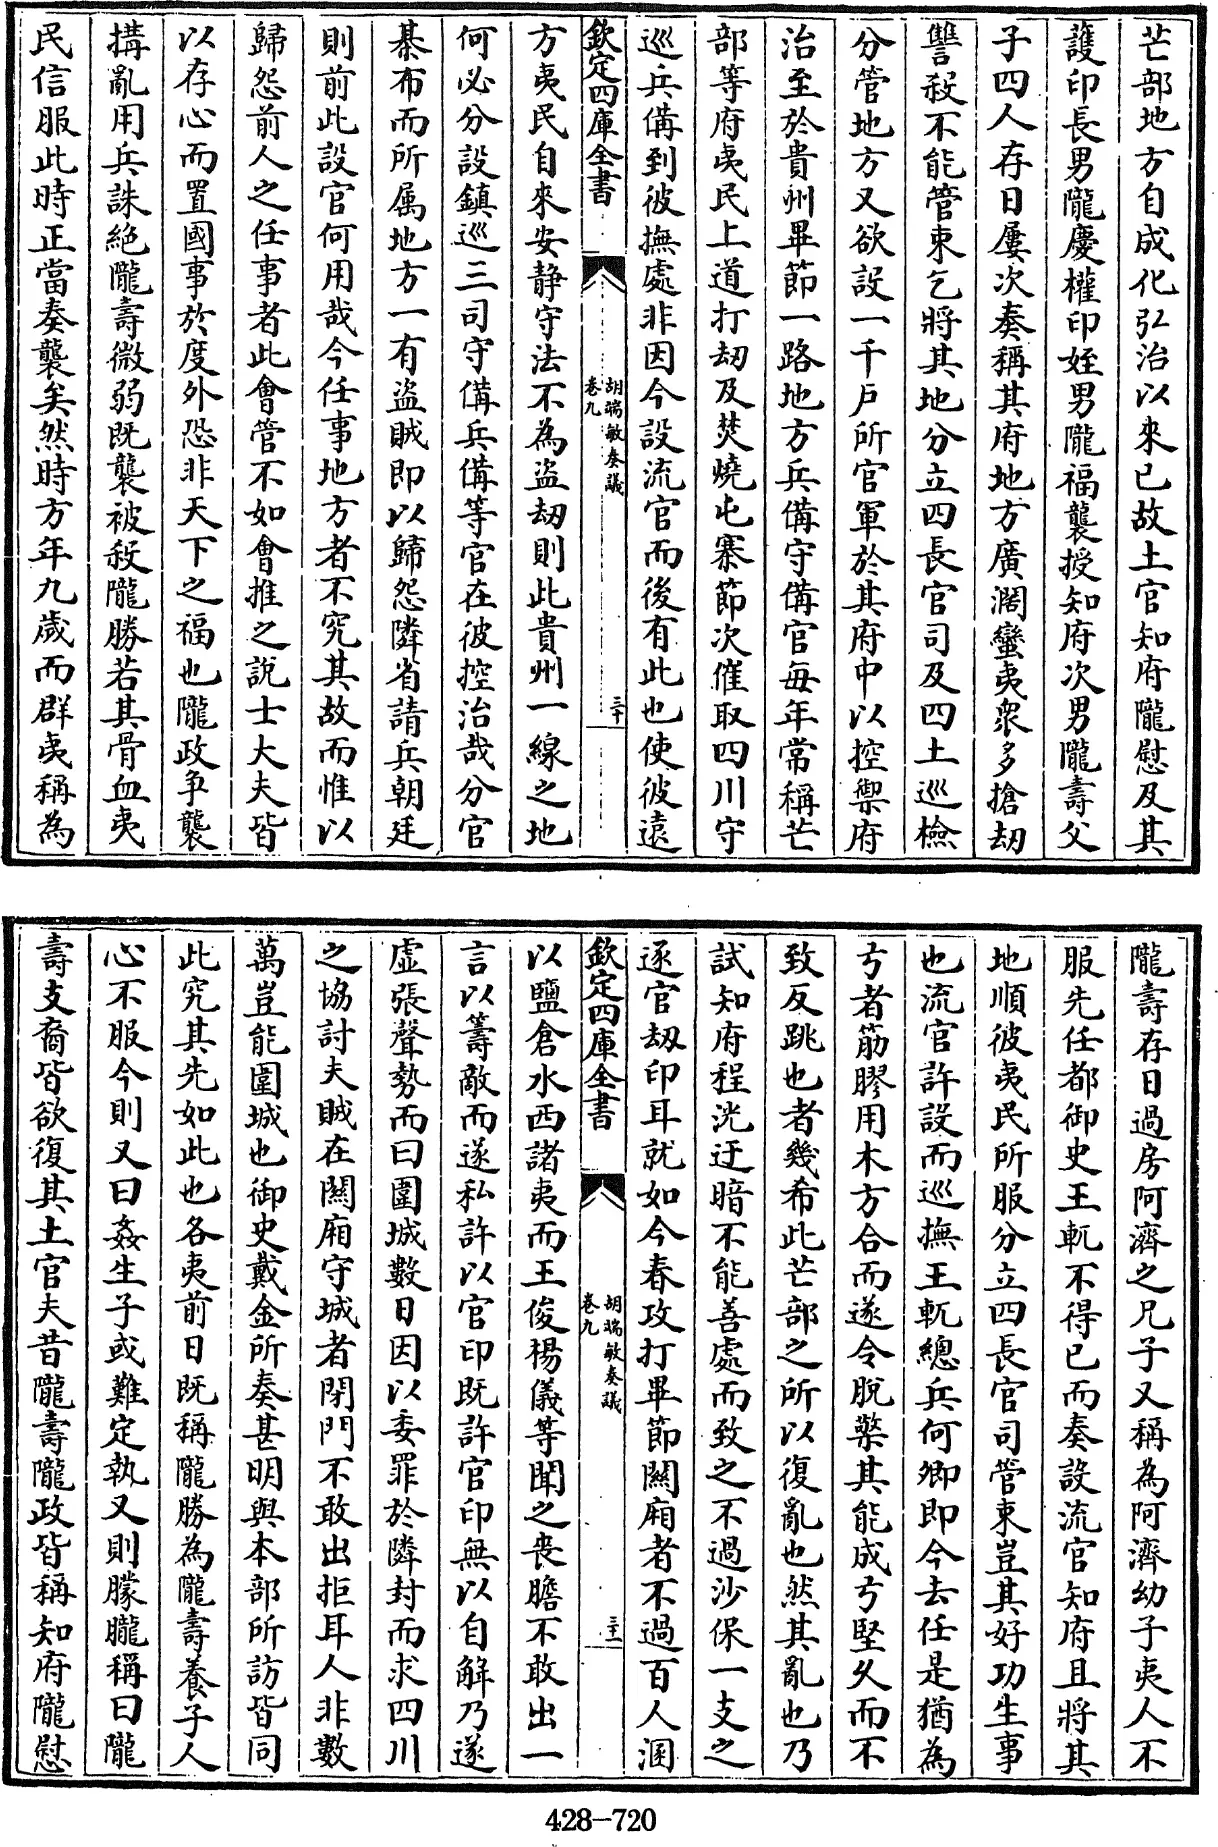 芒部地方自成化弘治以來已故土官知府隴慰及其
護印長男隴慶權印姪男隴福襲授知府次男隴壽父
子四人存日屢次奏稱其府地方廣濶蠻夷衆多搶刼
讐殺不能管束乞將其地分立四長官司及四土巡檢
分管地方又欲設一千戶所官軍於其府中以控禦府
治至於貴州畢節一路地方兵備守備官每年常稱芒
部等府夷民上道打刼及焚燒屯寨節次催取四川守
巡兵備到彼撫處非因今設流官而後有此也使彼遠
欽定四庫全書
胡端敏奏議
卷九
三十
方夷民自來安静守法不為盜刼則此貴州一線之地
何必分設鎮巡三司守備兵備等官在彼控治哉分官
棊布而所属地方一有盜賊即以歸怨隣省請兵朝廷
則前此設官何用哉今任事地方者不究其故而惟以
歸怨前人之任事者此會管不如會推之說士大夫皆
以存心而置國事於度外恐非天下之福也隴政争襲
搆亂用兵誅絶隴壽微弱既襲被殺隴勝若其骨血夷
民信服此時正當奏襲矣然時方年九歲而群夷稱為
隴壽存日過房阿濟之兄子又稱為阿濟幼子夷人不
服先任都御史王軏不得已而奏設流官知府且將其
地順彼夷民所服分立四長官司管束豈其好功生事
也流官許設而巡撫王軏總兵何卿即今去任是猶為
弓者筋膠用木方合而遂令脫檠其能成弓堅久而不
致反跳也者幾希此芒部之所以復亂也然其亂也乃
試知府程洸迂暗不能善處而致之不過沙保一支之
逐官刼印耳就如今春攻打畢節關廂者不過百人溷
欽定四庫全書
胡端敏奏議
卷九
三十一
以鹽倉水西諸夷而王俊楊儀等聞之喪膽不敢出一
言以籌敵而遂私許以官印既許官印無以自解乃遂
虛張聲勢而曰圍城數日因以委罪於隣封而求四川
之協討夫賊在關廂守城者閉門不敢出拒耳人非數
萬豈能圍城也御史戴金所奏甚明與本部所訪皆同
此究其先如此也各夷前日既稱隴勝為隴壽養子人
心不服今則又曰姦生子或難定執又則朦朧稱曰隴
壽支裔皆欲復其土官夫昔隴壽隴政皆稱知府隴慰
428-720